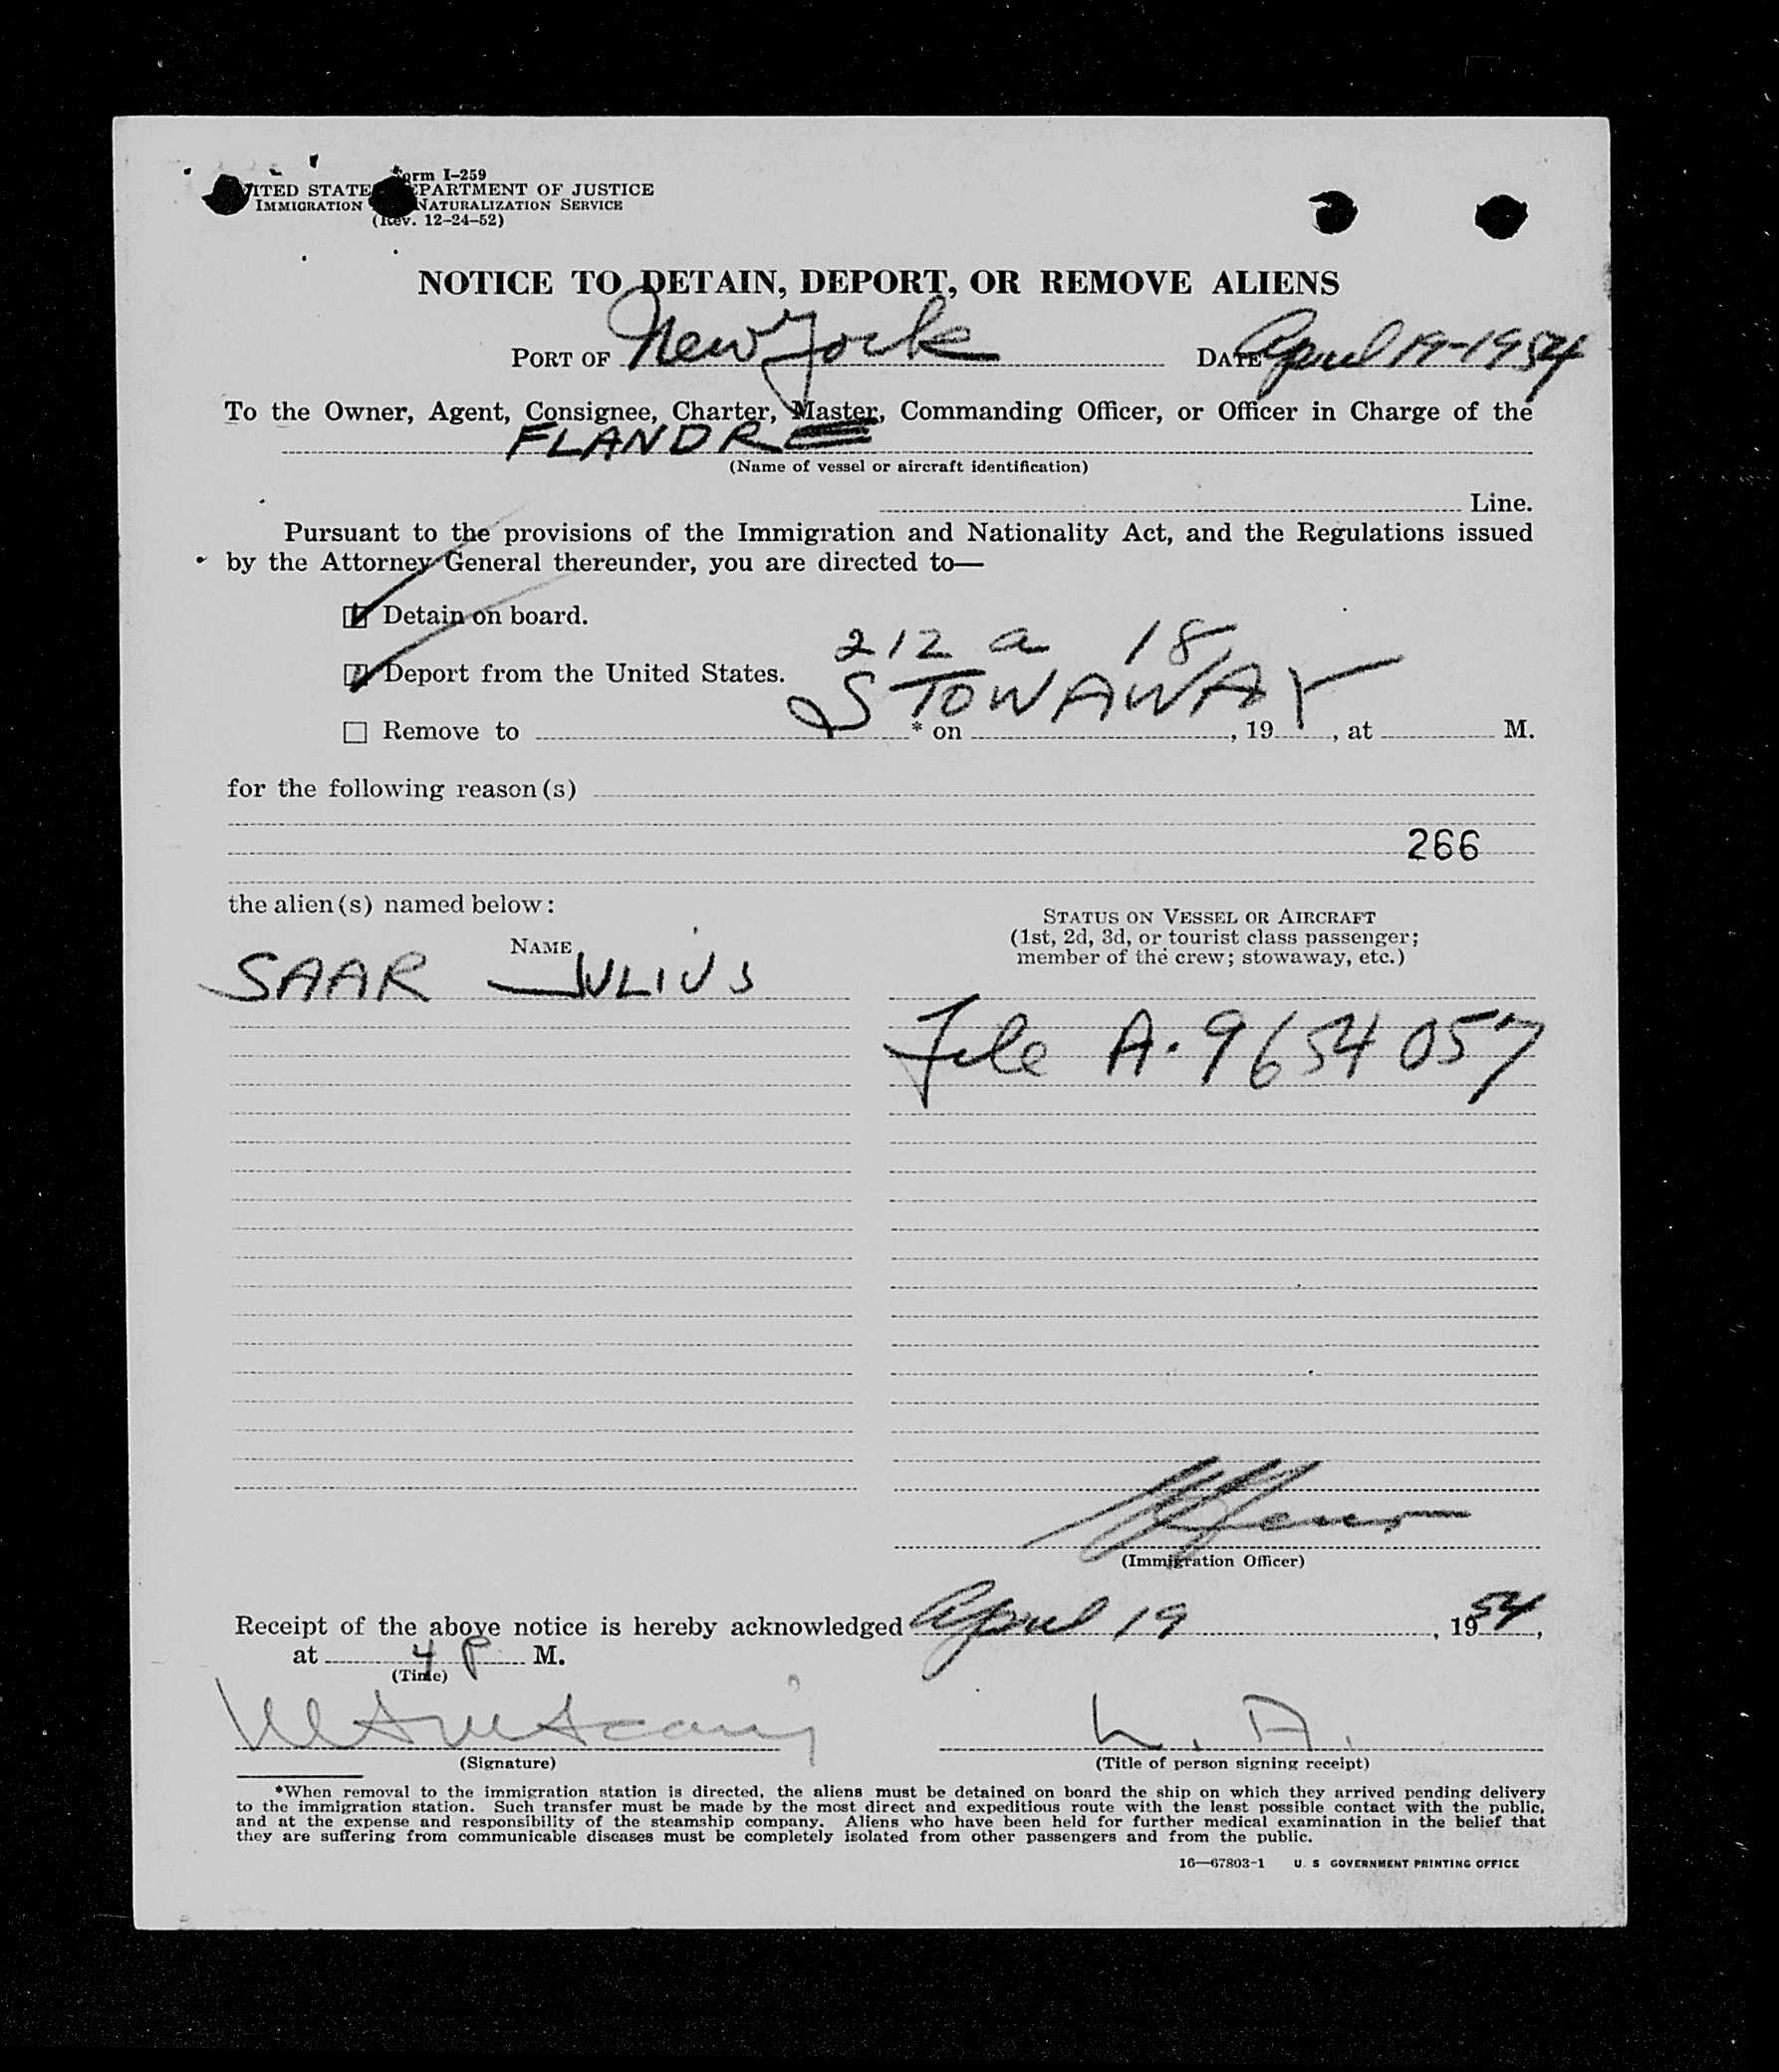 Form I-259
UNITED STATES DEPARTMENT OF JUSTICE
IMMIGRATION NATURALIZATION SERVICE
(Rev. 12-24-52)
NOTICE TO DETAIN, DEPORT, OR REMOVE ALIENS
PORT OF New York DATE April 19-1954
To the Owner, Agent, Consignee, Charter, Master, Commanding Officer, or Officer in Charge of the
FLANDRE
(Name of vessel or aircraft identification)
Line.
Pursuant to the provisions of the Immigration and Nationality Act, and the Regulations issued
by the Attorney General thereunder, you are directed to—
Detain on board.
212 a 18
Deport from the United States.
STOWAWAY
Remove to * on , 19 , at M.
for the following reason(s)
266
the alien(s) named below:
STATUS ON VESSEL OR AIRCRAFT
(1st, 2d, 3d, or tourist class passenger;
member of the crew; stowaway, etc.)
NAME
SAAR JULIUS
File A. 9654057
(Immigration Officer)
Receipt of the above notice is hereby acknowledged April 19, 1954,
at 4 P M.
(Time)
(Signature)
(Title of person signing receipt)
*When removal to the immigration station is directed, the aliens must be detained on board the ship on which they arrived pending delivery
to the immigration station. Such transfer must be made by the most direct and expeditious route with the least possible contact with the public,
and at the expense and responsibility of the steamship company. Aliens who have been held for further medical examination in the belief that
they are suffering from communicable diseases must be completely isolated from other passengers and from the public.
16—67803-1 U. S GOVERNMENT PRINTING OFFICE